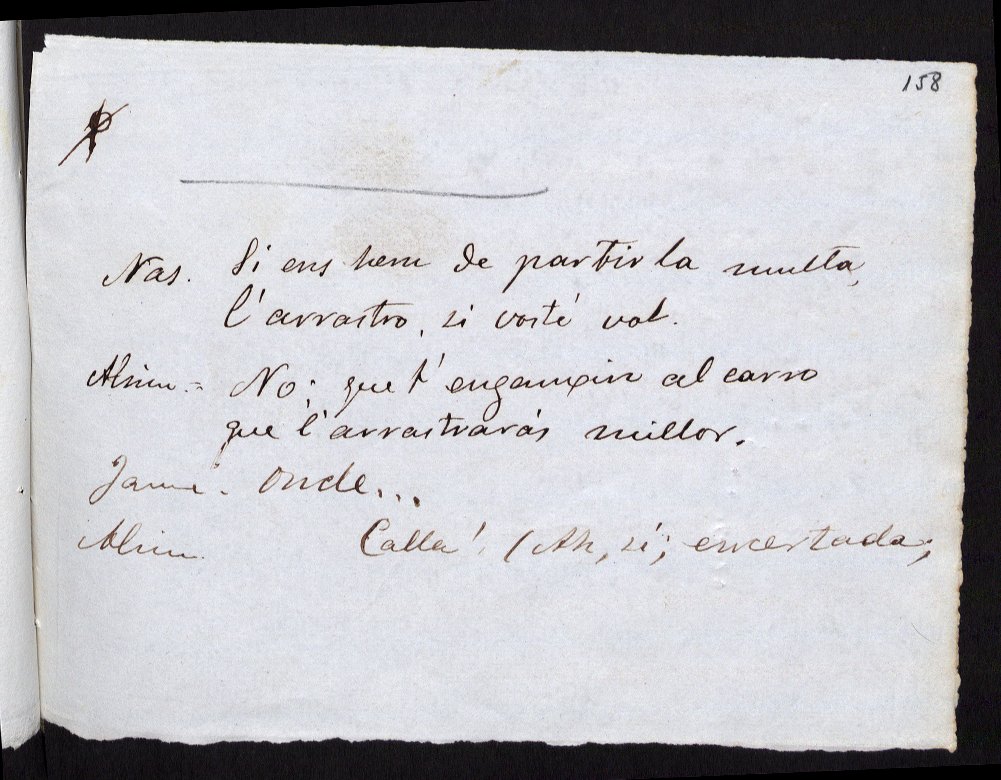 158
Nas. Si ens hem de partir la multa,
l'arrastro, si vosté vol.
No; que t'enganxin al carro
que l'arrastrarás millor.
Jaume. Onde...
Calla! (Ah, sí; encertada;